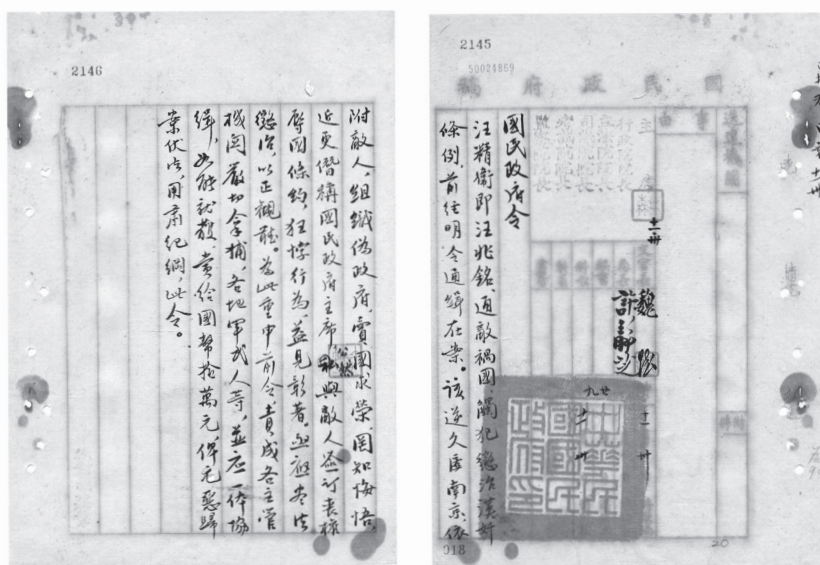 2145
50024869
國民政府稿
國民政府令
汪精衛即汪兆銘，通敵禍國，觸犯懲治漢奸
條例，前經明令通緝在案。該逆久匿南京，依
018
20
2146
附敵人，組織偽政府，賣國求榮，罔知悔悟，
近更僭稱國民政府主席，公然與敵人簽訂喪權
辱國條約，狂悖行為，益見彰著，亟應盡法
懲治，以正視聽。為此重申前令，責成各主管
機關嚴切拿捕，各地軍民人等，並應一體協
緝，如能就獲，賞給國幣拾萬元，俾元惡歸
案伏法，用肅紀綱。此令。